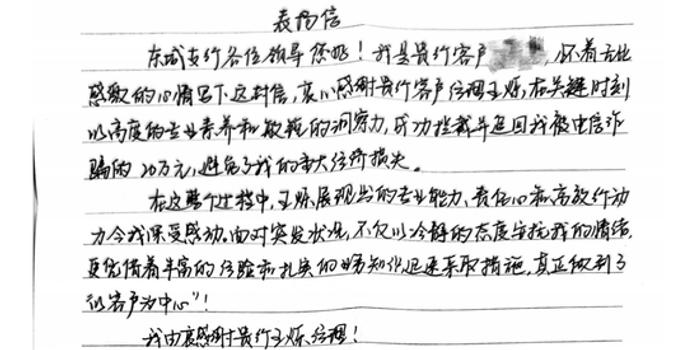 表扬信
东城支行各位领导您好！我是贵行客户，怀着无比
感激的心情写下这封信，衷心感谢贵行客户经理王烁，在关键时刻
以高度的专业素养和敏锐的洞察力，成功拦截并追回我被电信诈
骗的20万元，避免了我的重大经济损失。
在这整个过程中，王烁展现出的专业能力、责任心和高效行动
力令我深受感动。面对突发状况，不仅以冷静的态度安抚我的情绪，
更凭借着丰富的经验和扎实的业务知识迅速采取措施，真正做到了
"以客户为中心"！
我由衷感谢贵行王烁经理！